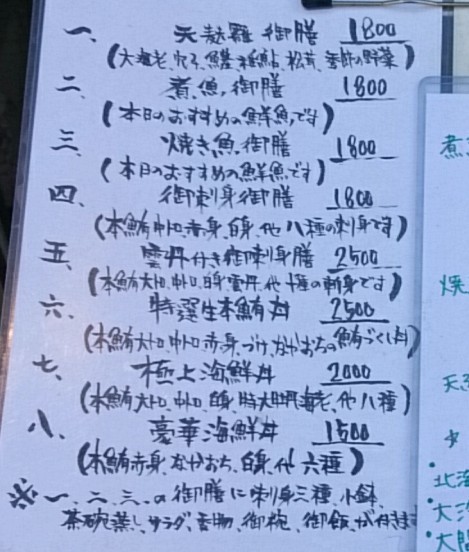 一、天麩羅御膳 1800
(大海老、穴子、鱚、稚鮎、松茸、季節の野菜)
二、煮魚御膳 1800
(本日のおすすめの鮮魚です)
三、焼き魚御膳 1800
(本日のおすすめの鮮魚です)
四、御刺身御膳 1800
(本鮪中トロ、赤身、白身、他八種の刺身です)
五、雲丹付き御刺身膳 2500
(本鮪大トロ、中トロ、白身、雲丹、他十種の刺身です)
六、特選生本鮪丼 2500
(本鮪大トロ、中トロ、赤身、づけ、なかおちの鮪づくし丼)
七、極上海鮮丼 2000
(本鮪大トロ、中トロ、白身、特大牡丹海老、他八種)
八、豪華海鮮丼 1500
(本鮪赤身、なかおち、白身、他六種)
※一、二、三、の御膳に刺身三種、小鉢、
茶碗蒸し、サラダ、香物、御椀、御飯、が付きます
煮
焼
天
北海
・大
・大間